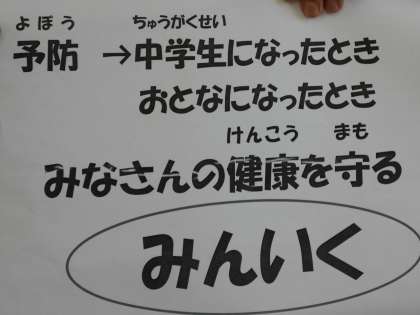 よぼう ちゅうがくせい
予防 →中学生になったとき
おとなになったとき
けんこう まも
みなさんの健康を守る
みんいく